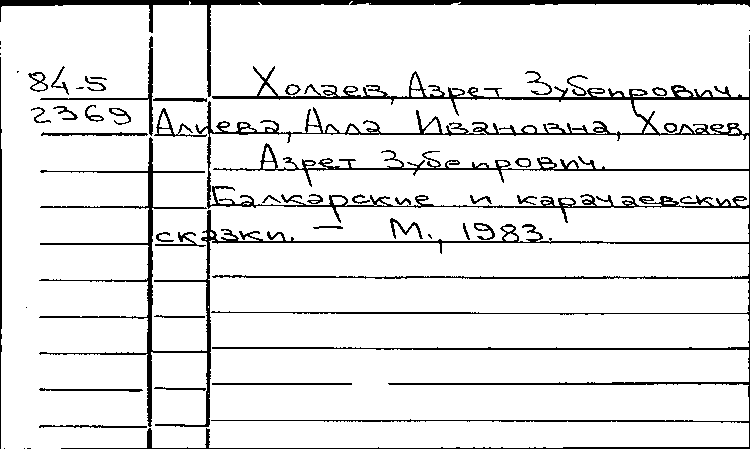 84-5 Холаев, Азрет Зубеирович.
2369 Алиева, Алла Ивановна, Холаев,
Азрет Зубеирович.
Балкарские и карачаевские
сказки. — М., 1983.